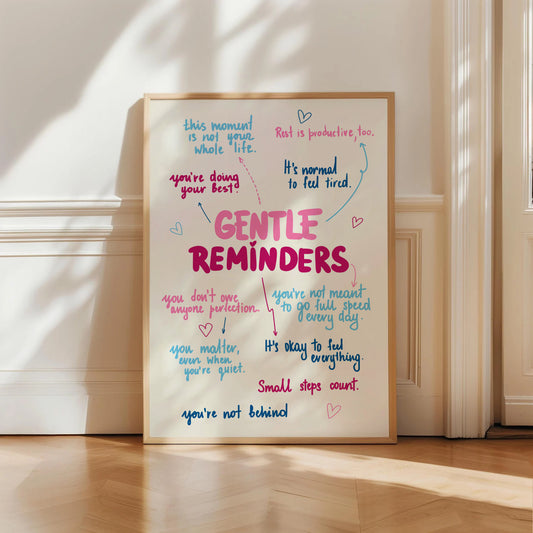 this moment
is not your
whole life.
Rest is productive, too.
It's normal
to feel tired.
you're doing
your best
GENTLE
REMINDERS
you don't owe
anyone perfection.
you're not meant
to go full speed
every day.
you matter,
even when
you're quiet.
It's okay to feel
everything.
Small steps count.
you're not behind